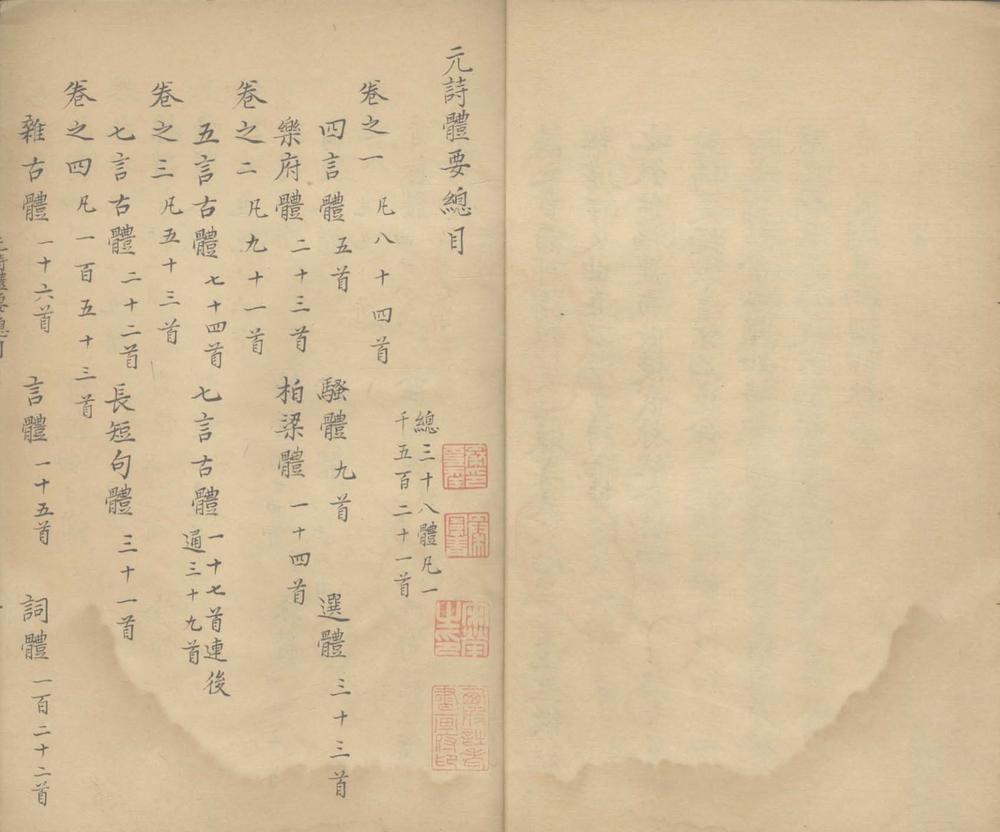 元詩體要總目
總三十八體凡一
千五百二十一首
卷之一 凡八十四首
四言體 五首 騷體 九首 選體 三十三首
樂府體 二十三首 柏梁體 一十四首
卷之二 凡九十一首
五言古體 七十四首 七言古體 一十七首連後通三十九首
卷之三 凡五十三首
七言古體 二十二首 長短句體 三十一首
卷之四 凡一百五十三首
雜古體 一十六首 言體 一十五首 詞體 一百二十二首
元詩體要總目